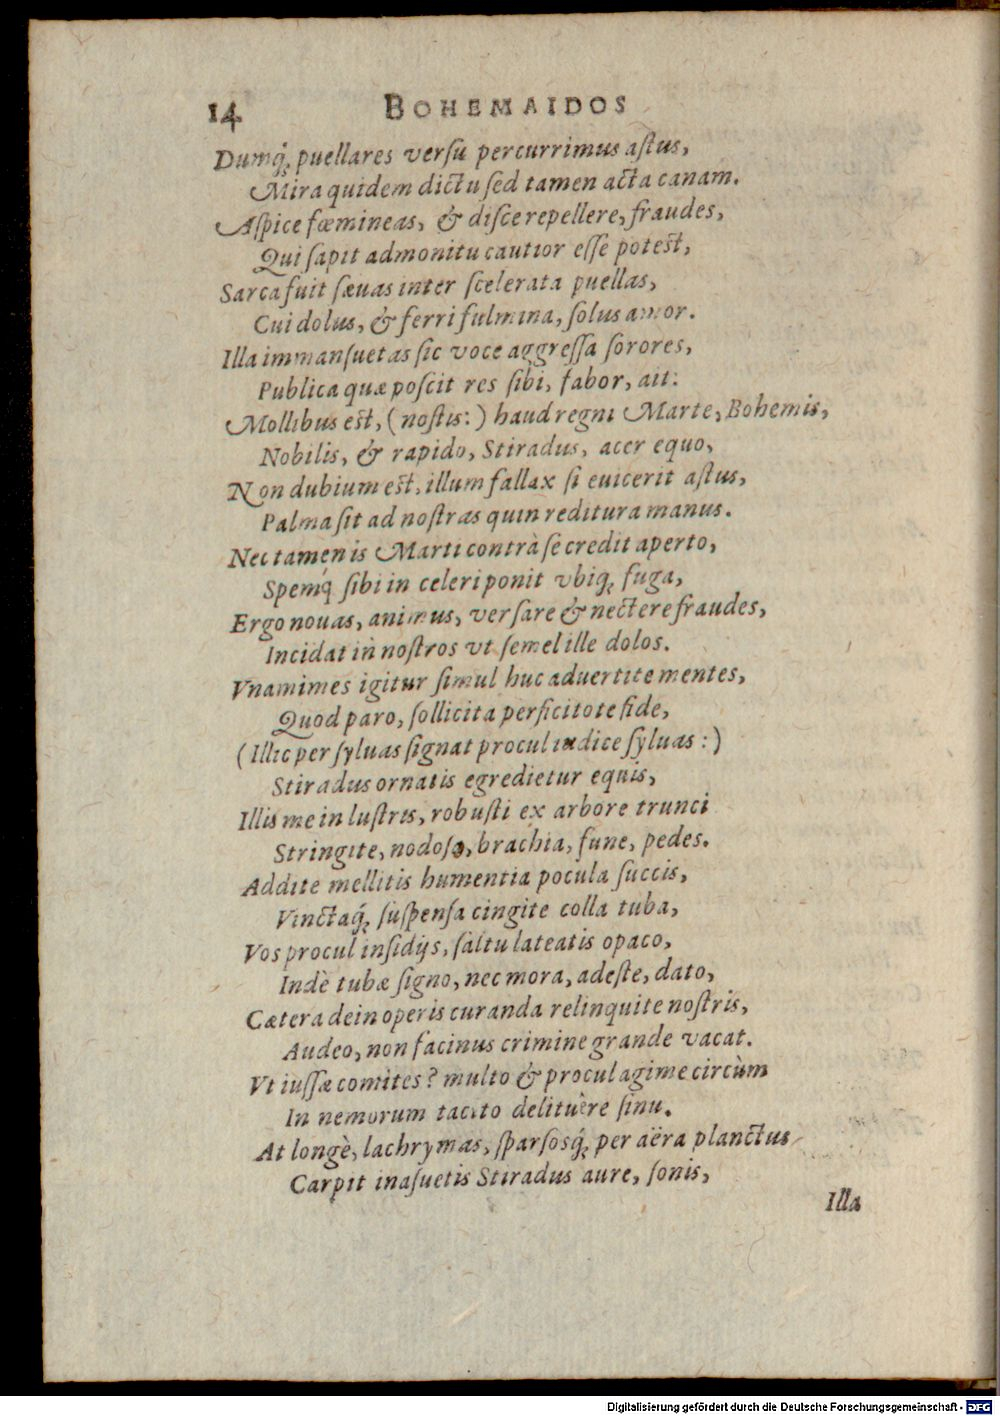 14 BOHEMAIDOS
Dumq́; puellares versu percurrimus astus,
Mira quidem dictu sed tamen acta canam.
Aspice fœmineas, & disce repellere, fraudes,
Qui sapit admonitu cautior esse potest,
Sarca fuit sæuas inter scelerata puellas,
Cui dolus, & ferri fulmina, solus amor.
Illa immansuetas sic voce aggressa sorores,
Publica quæ poscit res sibi, fabor, ait:
Mollibus est, (nostis:) haud regni Marte, Bohemis,
Nobilis, & rapido, Stiradus, acer equo,
Non dubium est, illum fallax si euicerit astus,
Palma sit ad nostras quin reditura manus.
Nec tamen is Marti contrà se credit aperto,
Spemq́; sibi in celeri ponit vbiq; fuga,
Ergo nouas, animus, versare & nectere fraudes,
Incidat in nostros vt semel ille dolos.
Vnamimes igitur simul huc aduertite mentes,
Quod paro, sollicita perficitote fide,
(Illic per syluas signat procul indice syluas:)
Stiradus ornatis egredietur equis,
Illis me in lustris, robusti ex arbore trunci
Stringite, nodoso, brachia, fune, pedes.
Addite mellitis humentia pocula succis,
Vinctaq́; suspensa cingite colla tuba,
Vos procul insidijs, saltu lateatis opaco,
Indè tubæ signo, nec mora, adeste, dato,
Cætera dein operis curanda relinquite nostris,
Audeo, non facinus crimine grande vacat.
Vt iussæ comites? multo & procul agime circùm
In nemorum tacito delituêre sinu.
At longè, lachrymas, sparsosq́; per aëra planctus
Carpit inasuetis Stiradus aure, sonis,
Illa
Digitalisierung gefördert durch die Deutsche Forschungsgemeinschaft - DFG